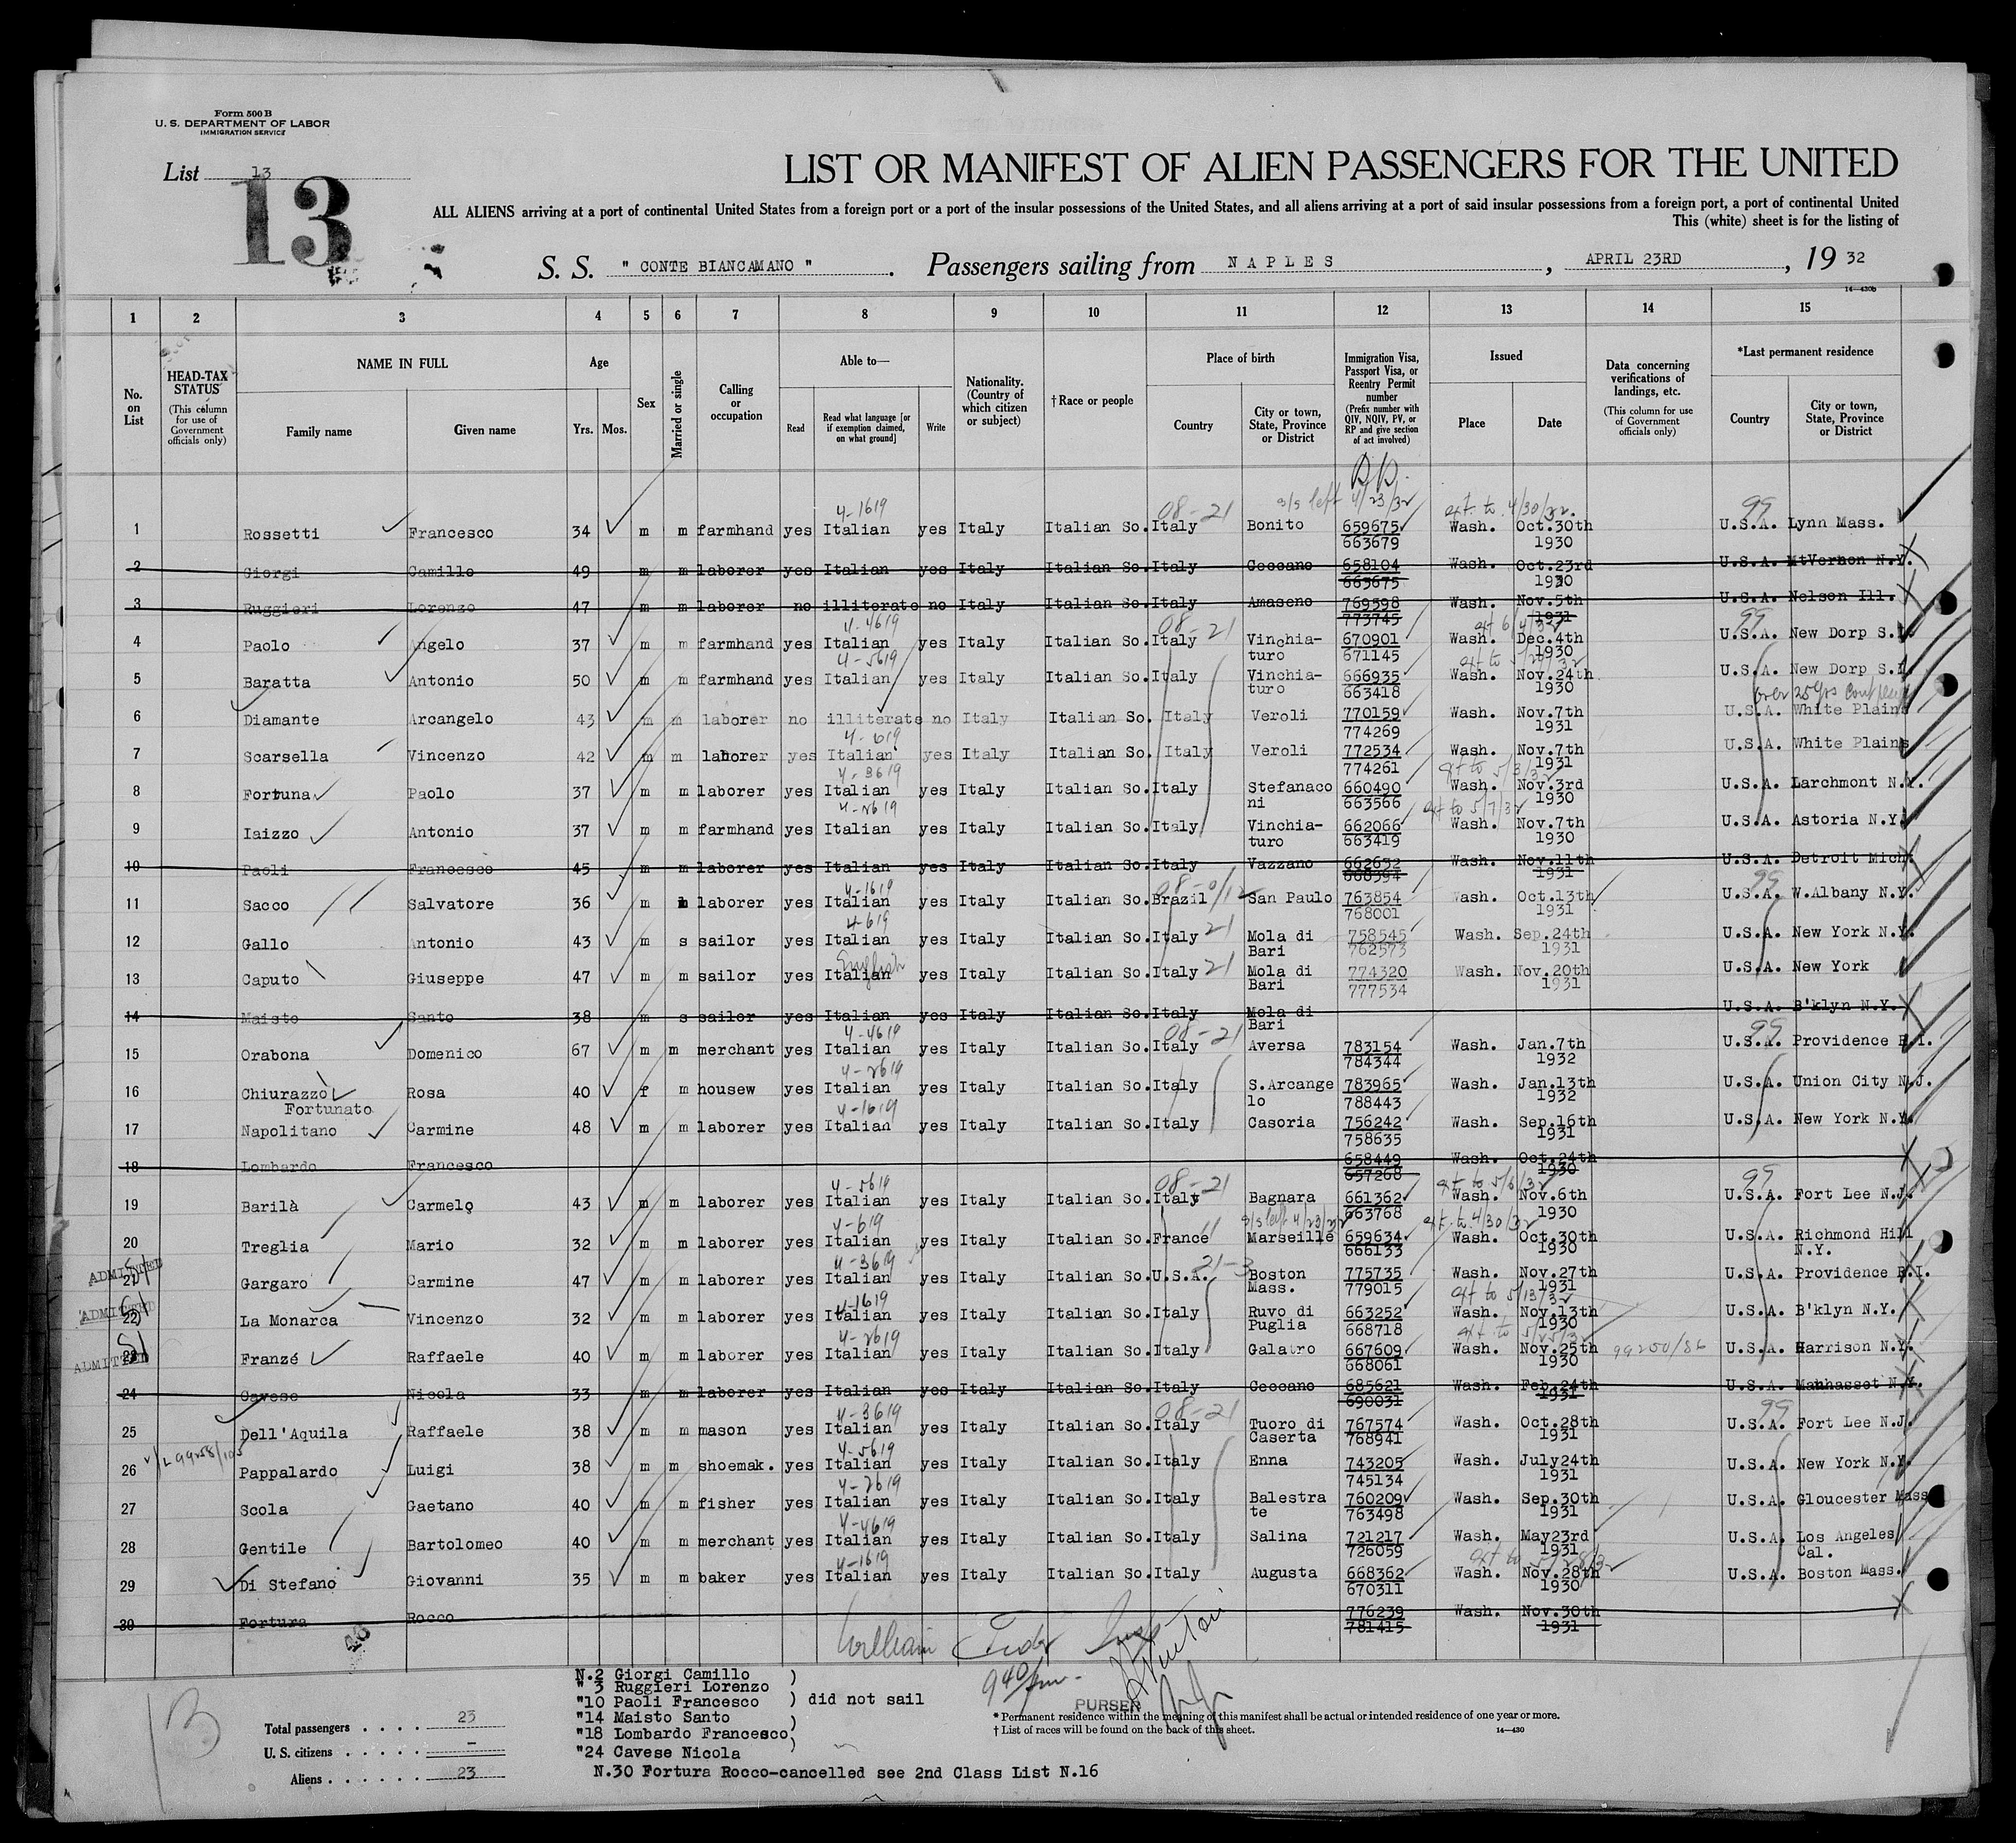 Form 500 B
U. S. DEPARTMENT OF LABOR
IMMIGRATION SERVICE
List 13
13
LIST OR MANIFEST OF ALIEN PASSENGERS FOR THE UNITED
ALL ALIENS arriving at a port of continental United States from a foreign port or a port of the insular possessions of the United States, and all aliens arriving at a port of said insular possessions from a foreign port, a port of continental United
This (white) sheet is for the listing of
S. S. " CONTE BIANCAMANO " . Passengers sailing from NAPLES , APRIL 23RD , 19 32
14—430b
1 2 3 4 5 6 7 8 9 10 11 12 13 14 15
No. on List
HEAD-TAX STATUS (This column for use of Government officials only)
NAME IN FULL Family name Given name
Age Yrs. Mos.
Sex
Married or single
Calling or occupation
Able to— Read Read what language [or if exemption claimed, on what ground] Write
Nationality. (Country of which citizen or subject)
†Race or people
Place of birth Country City or town, State, Province or District
Immigration Visa, Passport Visa, or Reentry Permit number (Prefix number with QIV, NQIV, PV, or RP and give section of act involved)
Issued Place Date
Data concerning verifications of landings, etc. (This column for use of Government officials only)
*Last permanent residence Country City or town, State, Province or District
4-1619 08-21 s/s left 4/23/32 ext. to 4/30/32. 99
1 Rossetti Francesco 34 m m farmhand yes Italian yes Italy Italian So. Italy Bonito 659675 663679 Wash. Oct.30th 1930 U.S.A. Lynn Mass.
2 Giorgi Camillo 49 m m laborer yes Italian yes Italy Italian So. Italy Ceccano 658104 663675 Wash. Oct.23rd 1930 U.S.A. MtVernon N.Y.
3 Ruggieri Lorenzo 47 m m laborer no illiterate no Italy Italian So. Italy Amaseno 769598 773745 Wash. Nov.5th 1931 U.S.A. Nelson Ill.
4-4619 08-21 99
4 Paolo Angelo 37 m m farmhand yes Italian yes Italy Italian So. Italy Vinchia-turo 670901 671145 Wash. Dec.4th 1930 U.S.A. New Dorp S.I.
4-5619
5 Baratta Antonio 50 m m farmhand yes Italian yes Italy Italian So. Italy Vinchia-turo 666935 663418 Wash. Nov.24th 1930 U.S.A. New Dorp S.I.
6 Diamante Arcangelo 43 m m laborer no illiterate no Italy Italian So. Italy Veroli 770159 774269 Wash. Nov.7th 1931 U.S.A. White Plains
4-619
7 Scarsella Vincenzo 42 m m laborer yes Italian yes Italy Italian So. Italy Veroli 772534 774261 Wash. Nov.7th 1931 U.S.A. White Plains
4-3619 ext to 5/3/32
8 Fortuna Paolo 37 m m laborer yes Italian yes Italy Italian So. Italy Stefanaco ni 660490 663566 Wash. Nov.3rd 1930 U.S.A. Larchmont N.Y.
4-2619 ext to 5/7/32
9 Iaizzo Antonio 37 m m farmhand yes Italian yes Italy Italian So. Italy Vinchia-turo 662066 663419 Wash. Nov.7th 1930 U.S.A. Astoria N.Y.
10 Paoli Francesco 45 m m laborer yes Italian yes Italy Italian So. Italy Vazzano 662632 668394 Wash. Nov.11th 1931 U.S.A. Detroit Mich.
4-1619 99
11 Sacco Salvatore 36 m laborer yes Italian yes Italy Italian So. Brazil San Paulo 763854 768001 Wash. Oct.13th 1931 U.S.A. W.Albany N.Y.
4-619 21
12 Gallo Antonio 43 m s sailor yes Italian yes Italy Italian So. Italy Mola di Bari 758545 762573 Wash. Sep.24th 1931 U.S.A. New York N.Y.
English 21
13 Caputo Giuseppe 47 m m sailor yes Italian yes Italy Italian So. Italy Mola di Bari 774320 777534 Wash. Nov.20th 1931 U.S.A. New York
14 Maisto Santo 38 m s sailor yes Italian yes Italy Italian So. Italy Mola di Bari U.S.A. B'klyn N.Y.
4-4619 08-21 99
15 Orabona Domenico 67 m m merchant yes Italian yes Italy Italian So. Italy Aversa 783154 784344 Wash. Jan.7th 1932 U.S.A. Providence R.I.
4-2619
16 Chiurazzo Fortunato Rosa 40 f m housew yes Italian yes Italy Italian So. Italy S.Arcange lo 783965 788443 Wash. Jan.13th 1932 U.S.A. Union City N.J.
4-1619
17 Napolitano Carmine 48 m m laborer yes Italian yes Italy Italian So. Italy Casoria 756242 758635 Wash. Sep.16th 1931 U.S.A. New York N.Y.
18 Lombardo Francesco 658449 657268 Wash. Oct.24th 1930
4-5619 08-21 ext to 5/6/32 99
19 Barilà Carmelo 43 m m laborer yes Italian yes Italy Italian So. Italy Bagnara 661362 663768 Wash. Nov.6th 1930 U.S.A. Fort Lee N.J.
4-619 s/s left 4/23/32 ext. to 4/30/32
20 Treglia Mario 32 m m laborer yes Italian yes Italy Italian So. France Marseille 659634 666133 Wash. Oct.30th 1930 U.S.A. Richmond Hill N.Y.
ADMITTED 4-3619 21-3
21 Gargaro Carmine 47 m m laborer yes Italian yes Italy Italian So. U.S.A. Boston Mass. 775735 779015 Wash. Nov.27th 1931 U.S.A. Providence R.I.
ADMITTED 4-1619 ext to 5/13/32
22 La Monarca Vincenzo 32 m m laborer yes Italian yes Italy Italian So. Italy Ruvo di Puglia 663252 668718 Wash. Nov.13th 1930 U.S.A. B'klyn N.Y.
ADMITTED 4-2619 ext to 5/25/32
23 Franzé Raffaele 40 m m laborer yes Italian yes Italy Italian So. Italy Galatro 667609 668061 Wash. Nov.25th 1930 99250/86 U.S.A. Harrison N.Y.
24 Cavese Nicola 33 m m laborer yes Italian yes Italy Italian So. Italy Ceccano 685621 690031 Wash. Feb.24th 1931 U.S.A. Manhasset N.Y.
4-3619 08-21 99
25 Dell'Aquila Raffaele 38 m m mason yes Italian yes Italy Italian So. Italy Tuoro di Caserta 767574 768941 Wash. Oct.28th 1931 U.S.A. Fort Lee N.J.
4-5619
26 Pappalardo Luigi 38 m m shoemak. yes Italian yes Italy Italian So. Italy Enna 743205 745134 Wash. July24th 1931 U.S.A. New York N.Y.
4-2619
27 Scola Gaetano 40 m m fisher yes Italian yes Italy Italian So. Italy Balestra te 760209 763498 Wash. Sep.30th 1931 U.S.A. Gloucester Mass
4-4619
28 Gentile Bartolomeo 40 m m merchant yes Italian yes Italy Italian So. Italy Salina 721217 726059 Wash. May23rd 1931 U.S.A. Los Angeles Cal.
4-1619 ext to 5/28/32
29 Di Stefano Giovanni 35 m m baker yes Italian yes Italy Italian So. Italy Augusta 668362 670311 Wash. Nov.28th 1930 U.S.A. Boston Mass.
30 Fortura Rocco 776239 781415 Wash. Nov.30th 1931
N.2 Giorgi Camillo )
" 3 Ruggieri Lorenzo
"10 Paoli Francesco ) did not sail
"14 Maisto Santo )
"18 Lombardo Francesco
"24 Cavese Nicola )
N.30 Fortura Rocco-cancelled see 2nd Class List N.16
Total passengers . . . . 23
U. S. citizens . . . . . –
Aliens . . . . . . 23
PURSER
* Permanent residence within the meaning of this manifest shall be actual or intended residence of one year or more.
† List of races will be found on the back of this sheet.
14—430